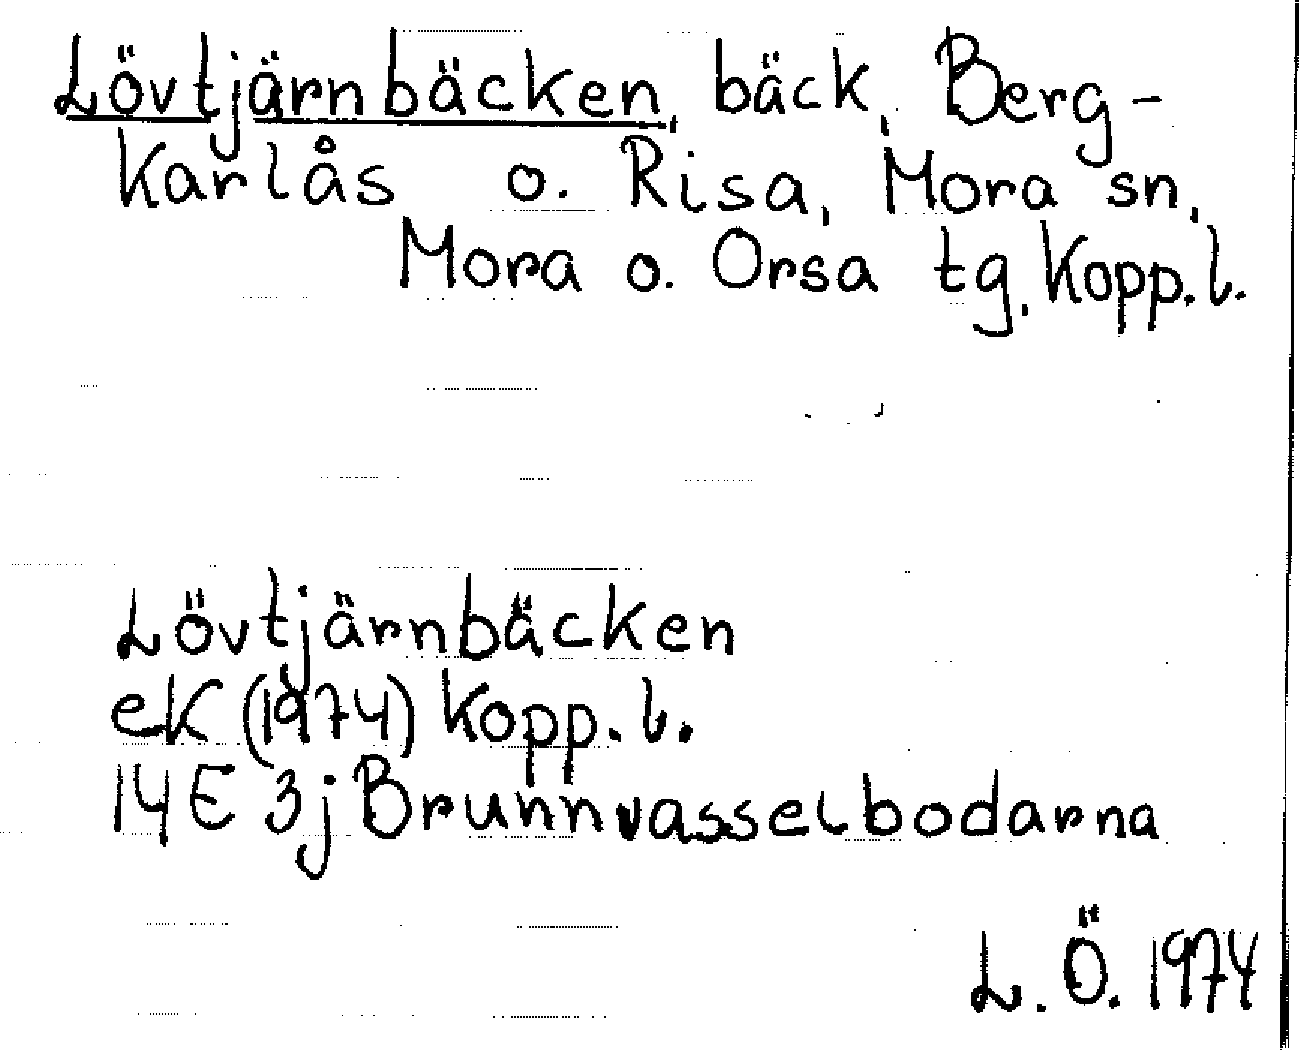 Lövtjärnbäcken, bäck, Berg-
karlås o. Risa, Mora sn,
Mora o. Orsa tg, Kopp.l.
Lövtjärnbäcken
eK (1974) Kopp.l.
14E 3j Brunnvasselbodarna
L.Ö. 1974